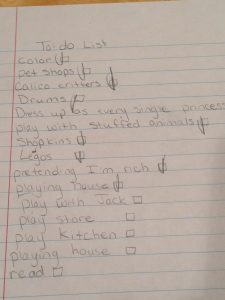 To-do List
Color
pet shops
Calico critters
Drums
Dress up as every single princess
play with stuffed animals
Shopkins
Legos
pretending I'm rich
playing house
play with Jack
play store
play kitchen
playing house
read